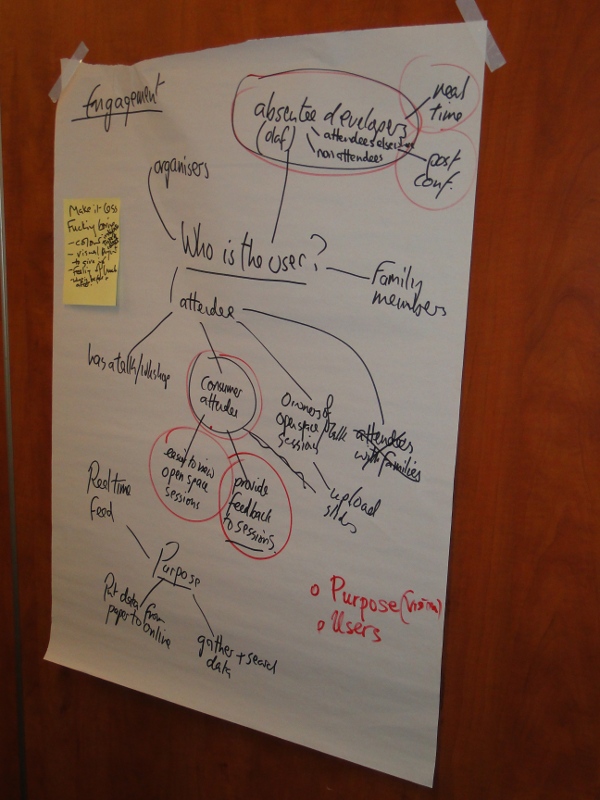 Engagement
absentee developers
(olaf)
attendees elsewhere
non attendees
real
time
post
conf.
organisers
Make it less
Fucking boring
- colour
- visual
to give
- feeling
Who is the user?
Family
members
attendee
has a talk/wkshop
consumer
attendee
Owners of
open space talk
session
attendees
with families
easy to view
open space
sessions
provide
feedback
to sessions.
upload
slides
Real time
feed
Purpose
Put data from
paper to online
gather + search
data
o Purpose (Vision)
o Users